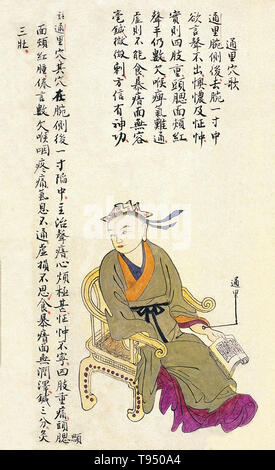 通里穴歌
通里腕側後去腕一寸中
欲言聲不出懊憹及怔忡
實則四肢重頭腮面頰紅
聲平仍數欠喉痺氣難通
虛則不能食暴瘖面無容
毫鍼微微刺方信有神功
註通里穴其穴在腕側後一寸陷中主治聲瘖心煩極甚怔忡不寧四肢重痠頭腮
面頰紅腫倦言數欠喉咽疼痛氣息不通虛損不思食暴瘖面無潤澤鍼三分灸
三壯
通里
顯
alamy
T950A4